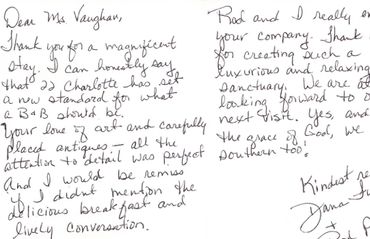 Dear Ms. Vaughan,
Thank you for a magnificent
stay. I can honestly say
that 22 Charlotte has set
a new standard for what
a B&B should be.
Your love of art and carefully
placed antiques – all the
attention to detail was perfect
And I would be remiss
if I didn't mention the
delicious breakfast and
lively conversation.
Rod and I really
your company. Thank
for creating such a
luxurious and relaxing
sanctuary. We are
looking forward to
next visit. Yes, and
the grace of God, we
southern too!
Kindest
Dana